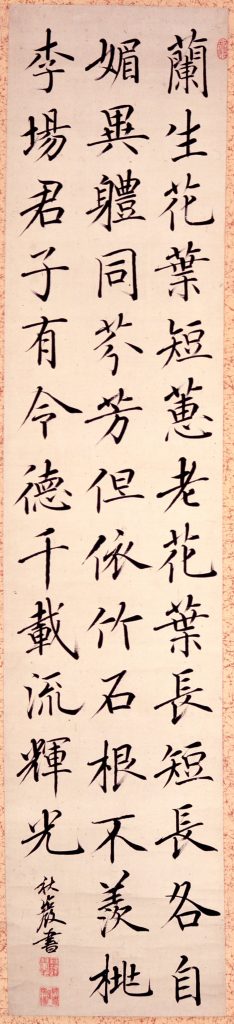 蘭生花葉短蕙老花葉長短長各自
媚異體同芬芳但依竹石根不羨桃
李場君子有令德千載流輝光
秋巖書